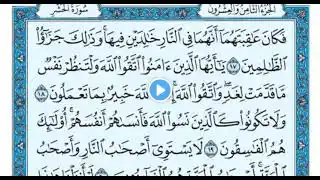 الجزء الثامن والعشرون سورة الحشر
فَكَانَ عَٰقِبَتَهُمَآ أَنَّهُمَا فِي ٱلنَّارِ خَٰلِدَيۡنِ فِيهَاۚ وَذَٰلِكَ جَزَٰٓؤُاْ
ٱلظَّٰلِمِينَ ١٧ يَٰٓأَيُّهَا ٱلَّذِينَ ءَامَنُواْ ٱتَّقُواْ ٱللَّهَ وَلۡتَنظُرۡ نَفۡسٞ
مَّا قَدَّمَتۡ لِغَدٖۖ وَٱتَّقُواْ ٱللَّهَۚ خَبِيرُۢ بِمَا تَعۡمَلُونَ ١٨
وَلَا تَكُونُواْ كَٱلَّذِينَ نَسُواْ ٱللَّهَ فَأَنسَىٰهُمۡ أَنفُسَهُمۡۚ أُوْلَٰٓئِكَ
هُمُ ٱلۡفَٰسِقُونَ ١٩ لَا يَسۡتَوِيٓ أَصۡحَٰبُ ٱلنَّارِ وَأَصۡحَٰبُ